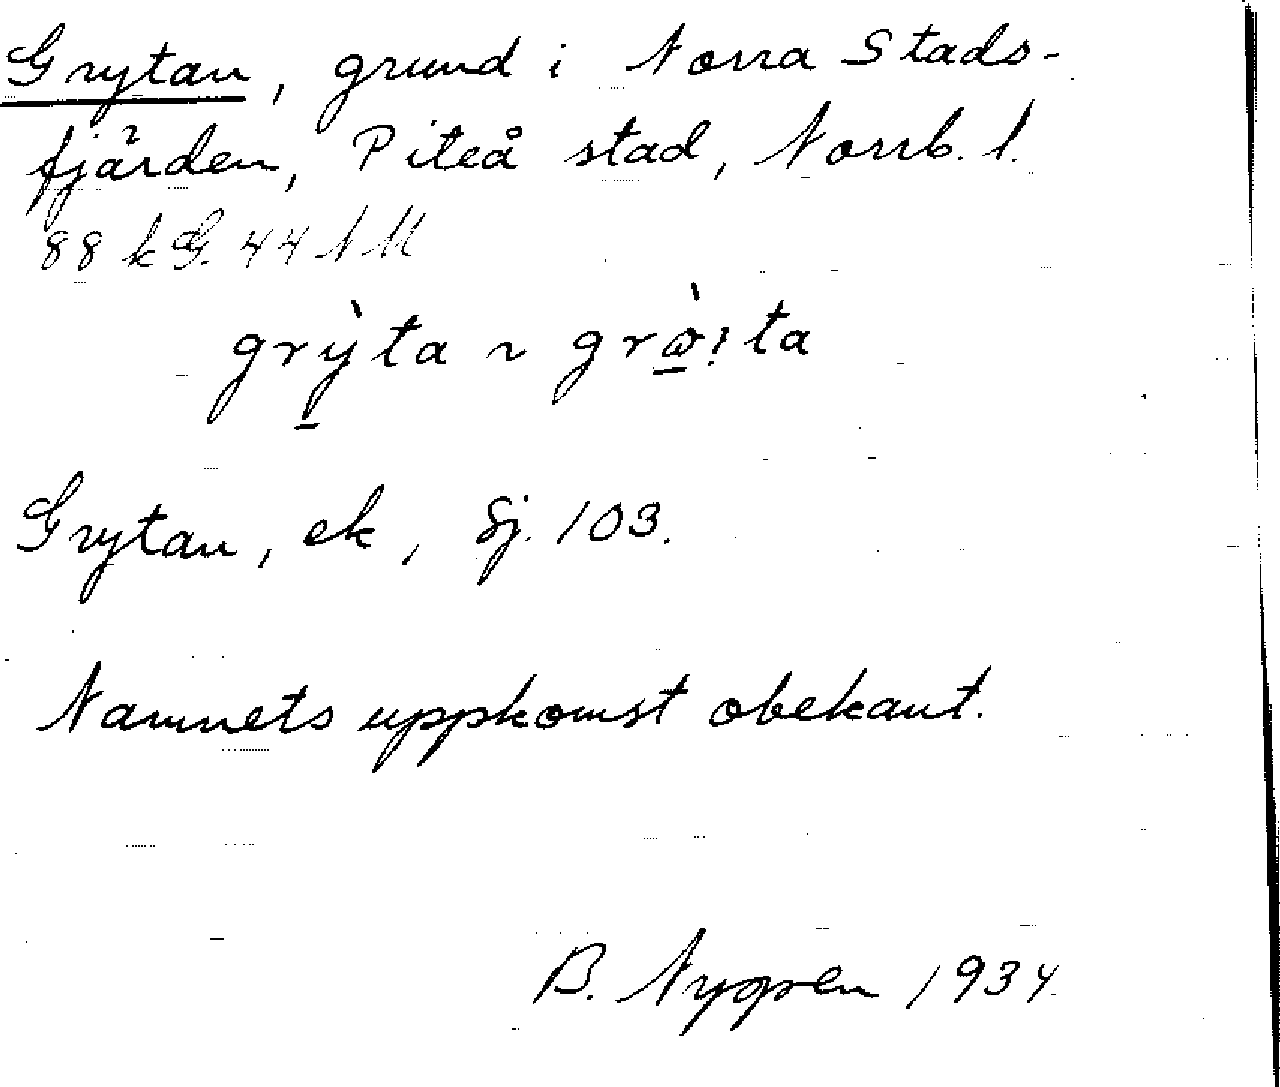 Grytan, grund i Norra Stads-
fjärden, Piteå stad, Norrb. l.
88 k G. 44 N M
grỳ̠ta ~ grø̠̀:ta
Grytan, ek, Sj. 103.
Namnets uppkomst obekant.
B. Nygren 1934